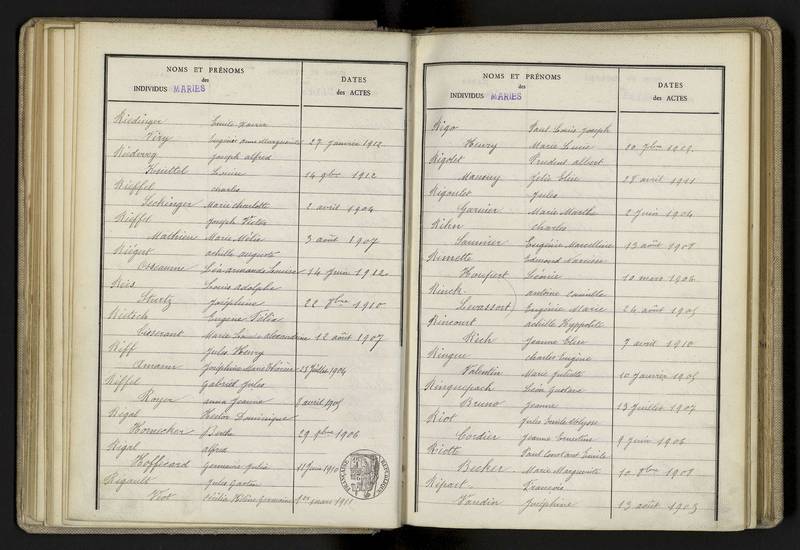 NOMS ET PRÉNOMS
des
INDIVIDUS MARIÉS
DATES
des ACTES
Riedinger Emile Xavier
Viry Eugénie Anne Marguerite 27 janvier 1912
Joseph Alfred
Knuttel Louise 14 9bre 1912
Rieffel Charles
Seckinger Marie Charlotte 2 avril 1904
Rieffel Joseph Victor
Mathieu Marie 3 août 1907
Riégert Achille Auguste
Léa Armande Louise 14 juin 1912
Ries Louis Adolphe
Sturtz Joséphine 22 1910
Rietsch Eugène Félix
Tisserant Marie Louise Alexandrine 12 août 1907
Riff Jules Henry
Amann Joséphine Marie 23 juillet 1904
Riffel Gabriel Jules
Royer Anna Jeanne avril 1905
Rigal Hector Dominique
Hornecker Berthe 29 1906
Rigal Alfred
Hofficard Germaine Julie 11 juin 1910
Rigault Jules Gaston
Viot Cécilia Hélène Germaine 1er mars 1911
RÉPUBLIQUE FRANÇAISE
NOMS ET PRÉNOMS
des
INDIVIDUS MARIÉS
DATES
des ACTES
Rigo Paul Louis Joseph
Henry Marie Lucie 20 1909
Rigolet Prudent Albert
Julie Elise 28 avril 1911
Rigoulot Jules
Garnier Marie Marthe 2 juin 1904
Rihn Charles
Saunier Eugénie Marcelline 13 août 1908
Rimette Edmond Narcisse
Houpert Léonie 10 mars 1906
Rinck Antoine Camille
Levassort Eugénie Marie 26 août 1905
Rincourt Achille Hyppolite
Rich Jeanne Elise 7 avril 1910
Ringue Charles Eugène
Valentin Marie Juliette 10 janvier 1905
Ringuepach Léon Gustave
Bruno Jeanne 13 juillet 1907
Riot Jules Emile Ulysse
Cordier Jeanne Ernestine 9 juin 1906
Riotte Paul Constant Emile
Becker Marie Marguerite 10 1908
Ripart François
Vaudin Joséphine 13 août 1903